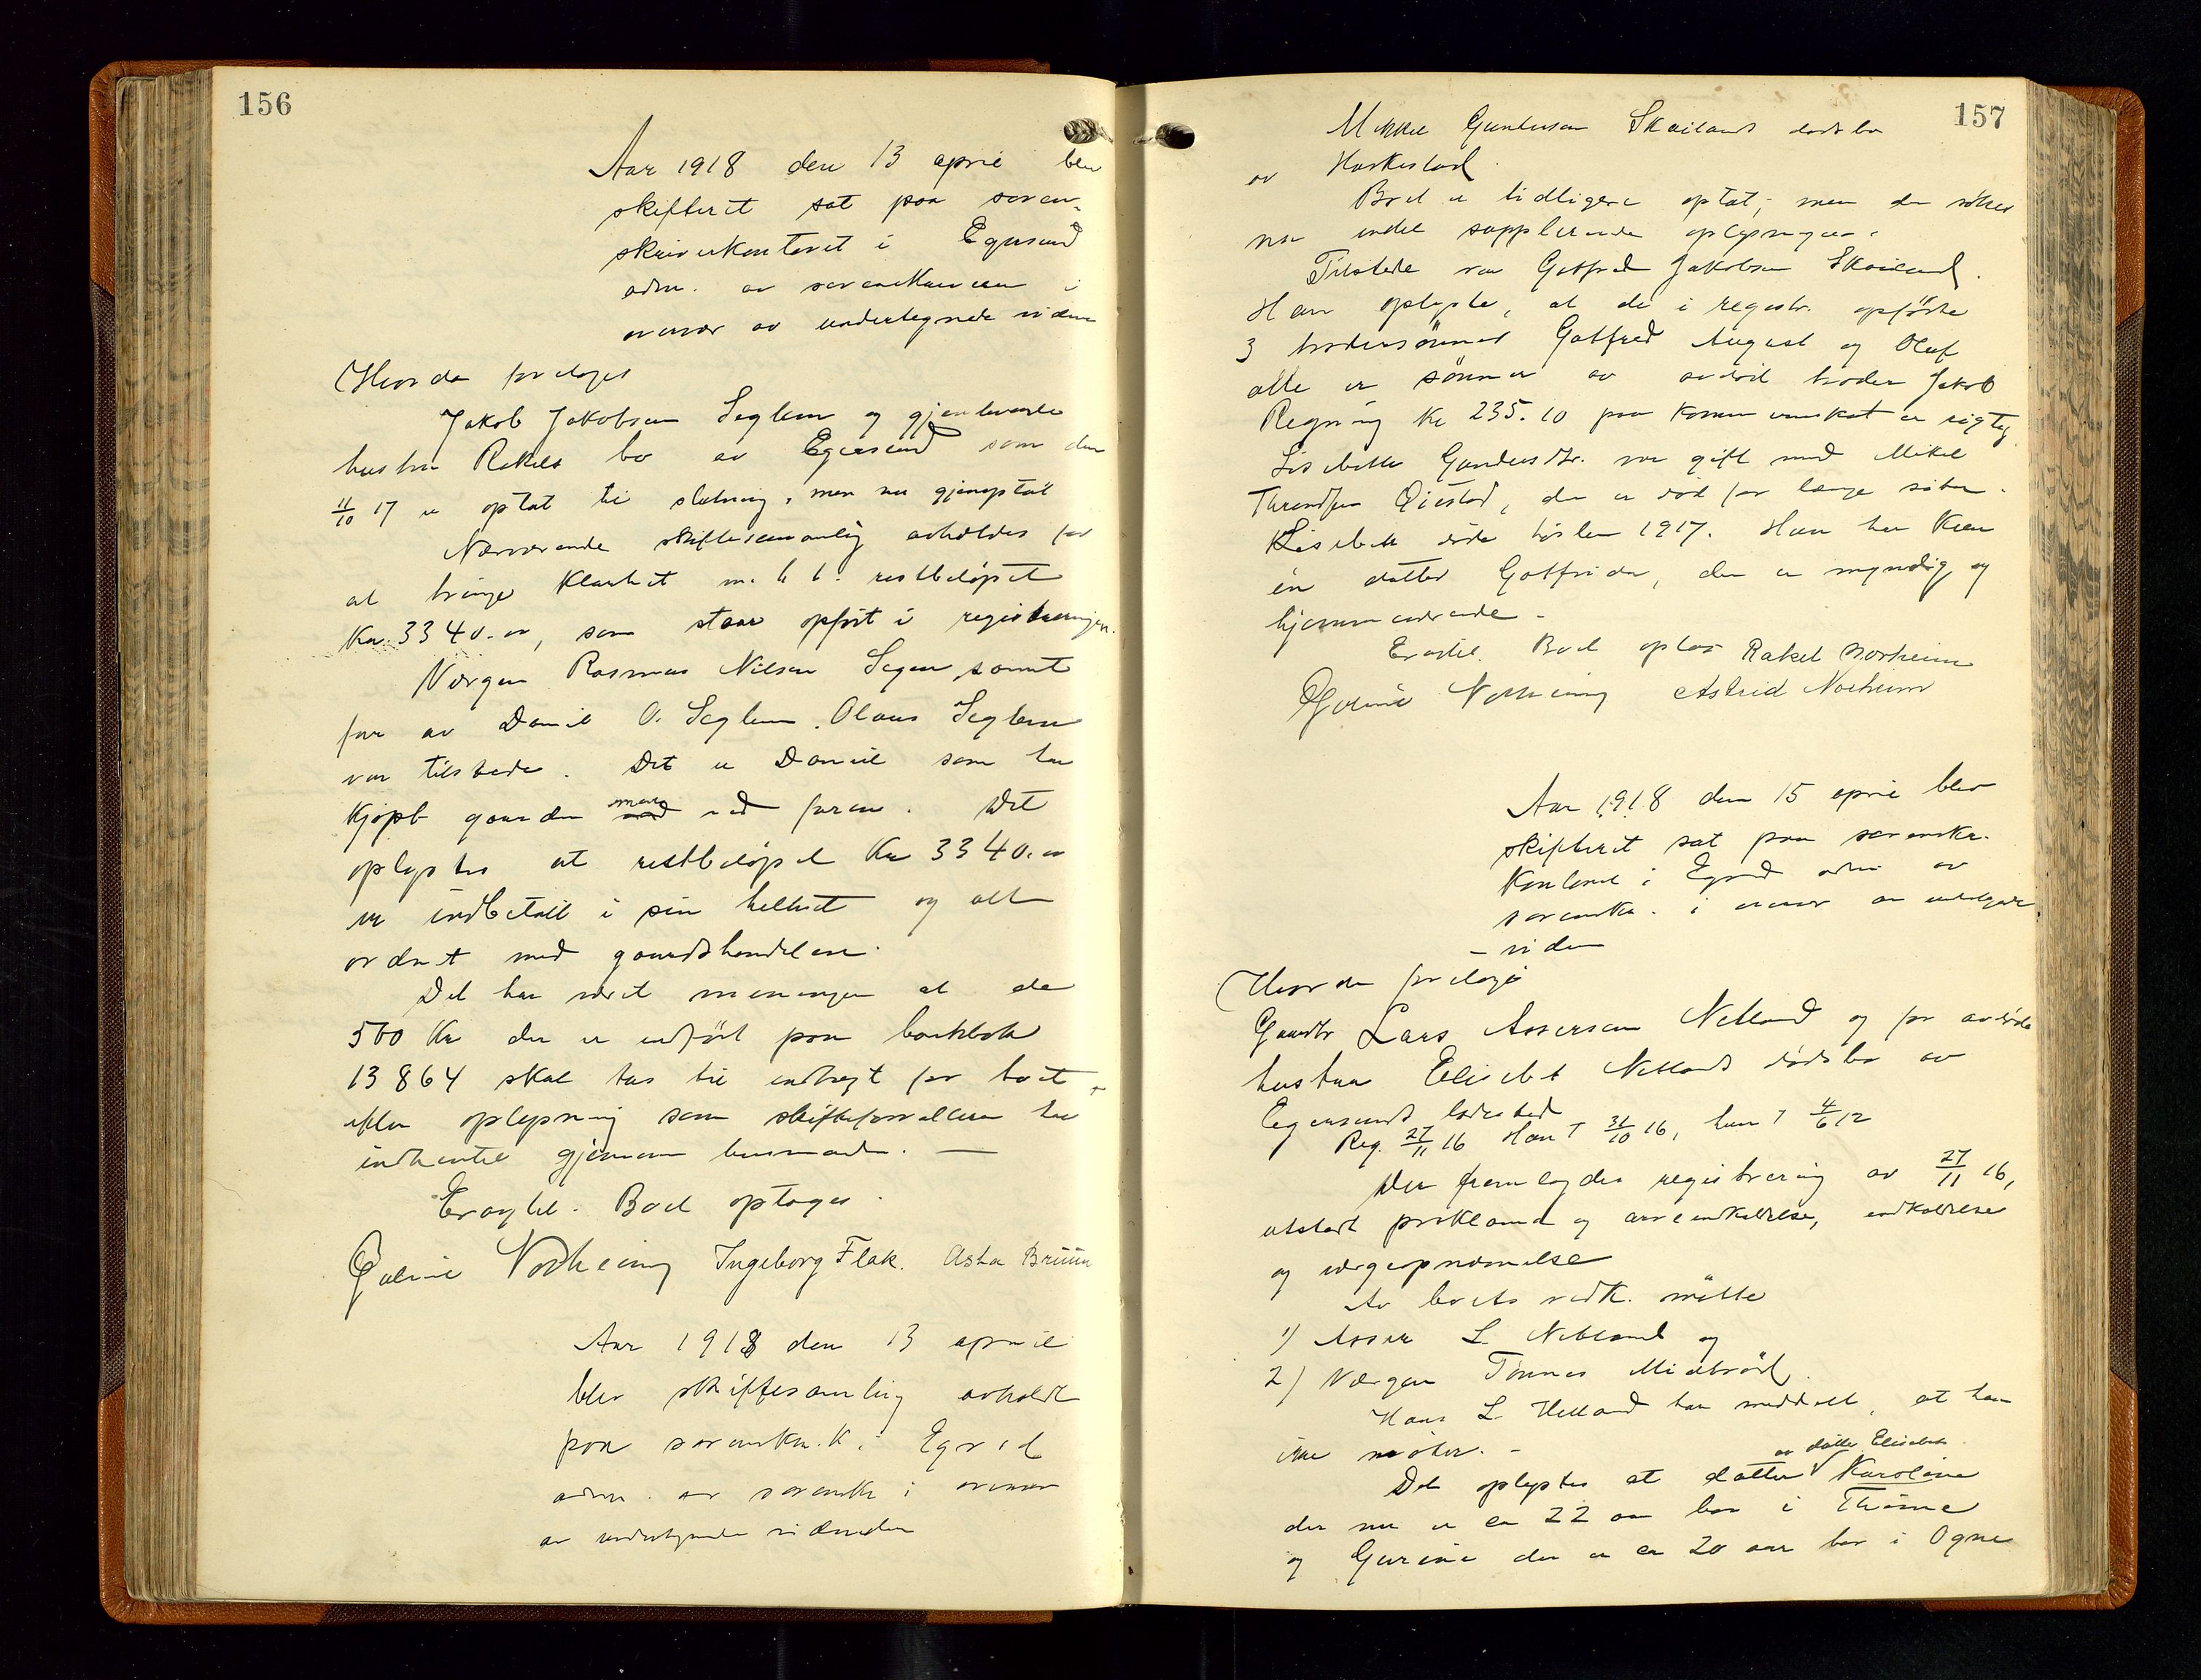 156
Aar 1918 den 13 april blev
skifteret sat paa soren-
skriverkontoret i Egersund
adm. av sorenskriveren i
overvær av undertegnede vidner
Hvorda foretoges
Jakob Jakobsen Seglem og gjenlevende
hustru Rakels bo av Egersund som den
11/10 17 er optat til slutning, men nu gjenoptat
Nærværende skiftesamling avholdes for
at bringe klarhet m. h. t. restbeløpet
Kr. 3340.00, som staar opført i registreringen.
Værgen Rasmus Nilsen samt
far av Daniel O. Seglem, Olaus Seglem
var tilstede. Det er Daniel som har
kjøpt gaarden ved faren. Det
oplystes at restbeløpet Kr 3340.00
er indbetalt i sin helhet og alt
ordnet med gaardshandelen.
Det har været meningen at de
500 Kr der er indført paa bankbok
13864 skal tas til indtægt for boet
efter oplysning som skifteforvalteren har
indhentet gjennem lensmanden. —
Eragtet. Boet optages.
Ingeborg Flak. Asta Bruun
Aar 1918 den 13 april
blev skiftesamling avholdt
paa sorenskr.k. i Egersd
adm. av sorenskr i overvær
av undertegnede vidner
157
Mikkel Gundersen Skailands dødsbo
av
Boet er tidligere optat; men der søkes
nu endel supplerende oplysninger.
Tilstede var Gotfred Jakobsen Skailand.
Han oplyste, at de i registr. opførte
3 brodersønner Gotfred August og Olaf
alle er sønner av avdød broder Jakob
Regning Kr 235.10 paa kommuneskat er rigtig
Lisebette Gundersdtr. var gift med Mikel
der er død for længe siden.
Lisebet døde høsten 1917. Hun har kun
én datter Gotfrida, der er myndig og
hjemmeværende -
Eragtet. Boet optas Rakel Norheim
Astrid Norheim
Aar 1918 den 15 april blev
skifteret sat paa sorenskr.
kontoret i Egersd adm av
sorenskr. i overvær av undertegnede
- vidner
Hvorda foretoges
Gaardbr Lars Assersen Netland og før avdøde
hustru Elisebet Netlands dødsbo av
Egersunds ladested
Reg. 27/11 16 Han † 31/10 16, hun † 4/6 12
Der fremlagdes registrering av 27/11 16,
utstedt proklama og arveindkaldelse, indkaldelse
og værgeopnævnelse
Av boets vedk. møtte
1) Asser L. Netland og
2) Værgen Tønnes Midbrød.
Hans L. Netland har meddelt, at han
ikke møter. -
av datter Elisebet
Det oplystes at datter Karoline
der nu er ca 22 aar bor i Thime
og Gurine der er ca 20 aar bor i Ogne